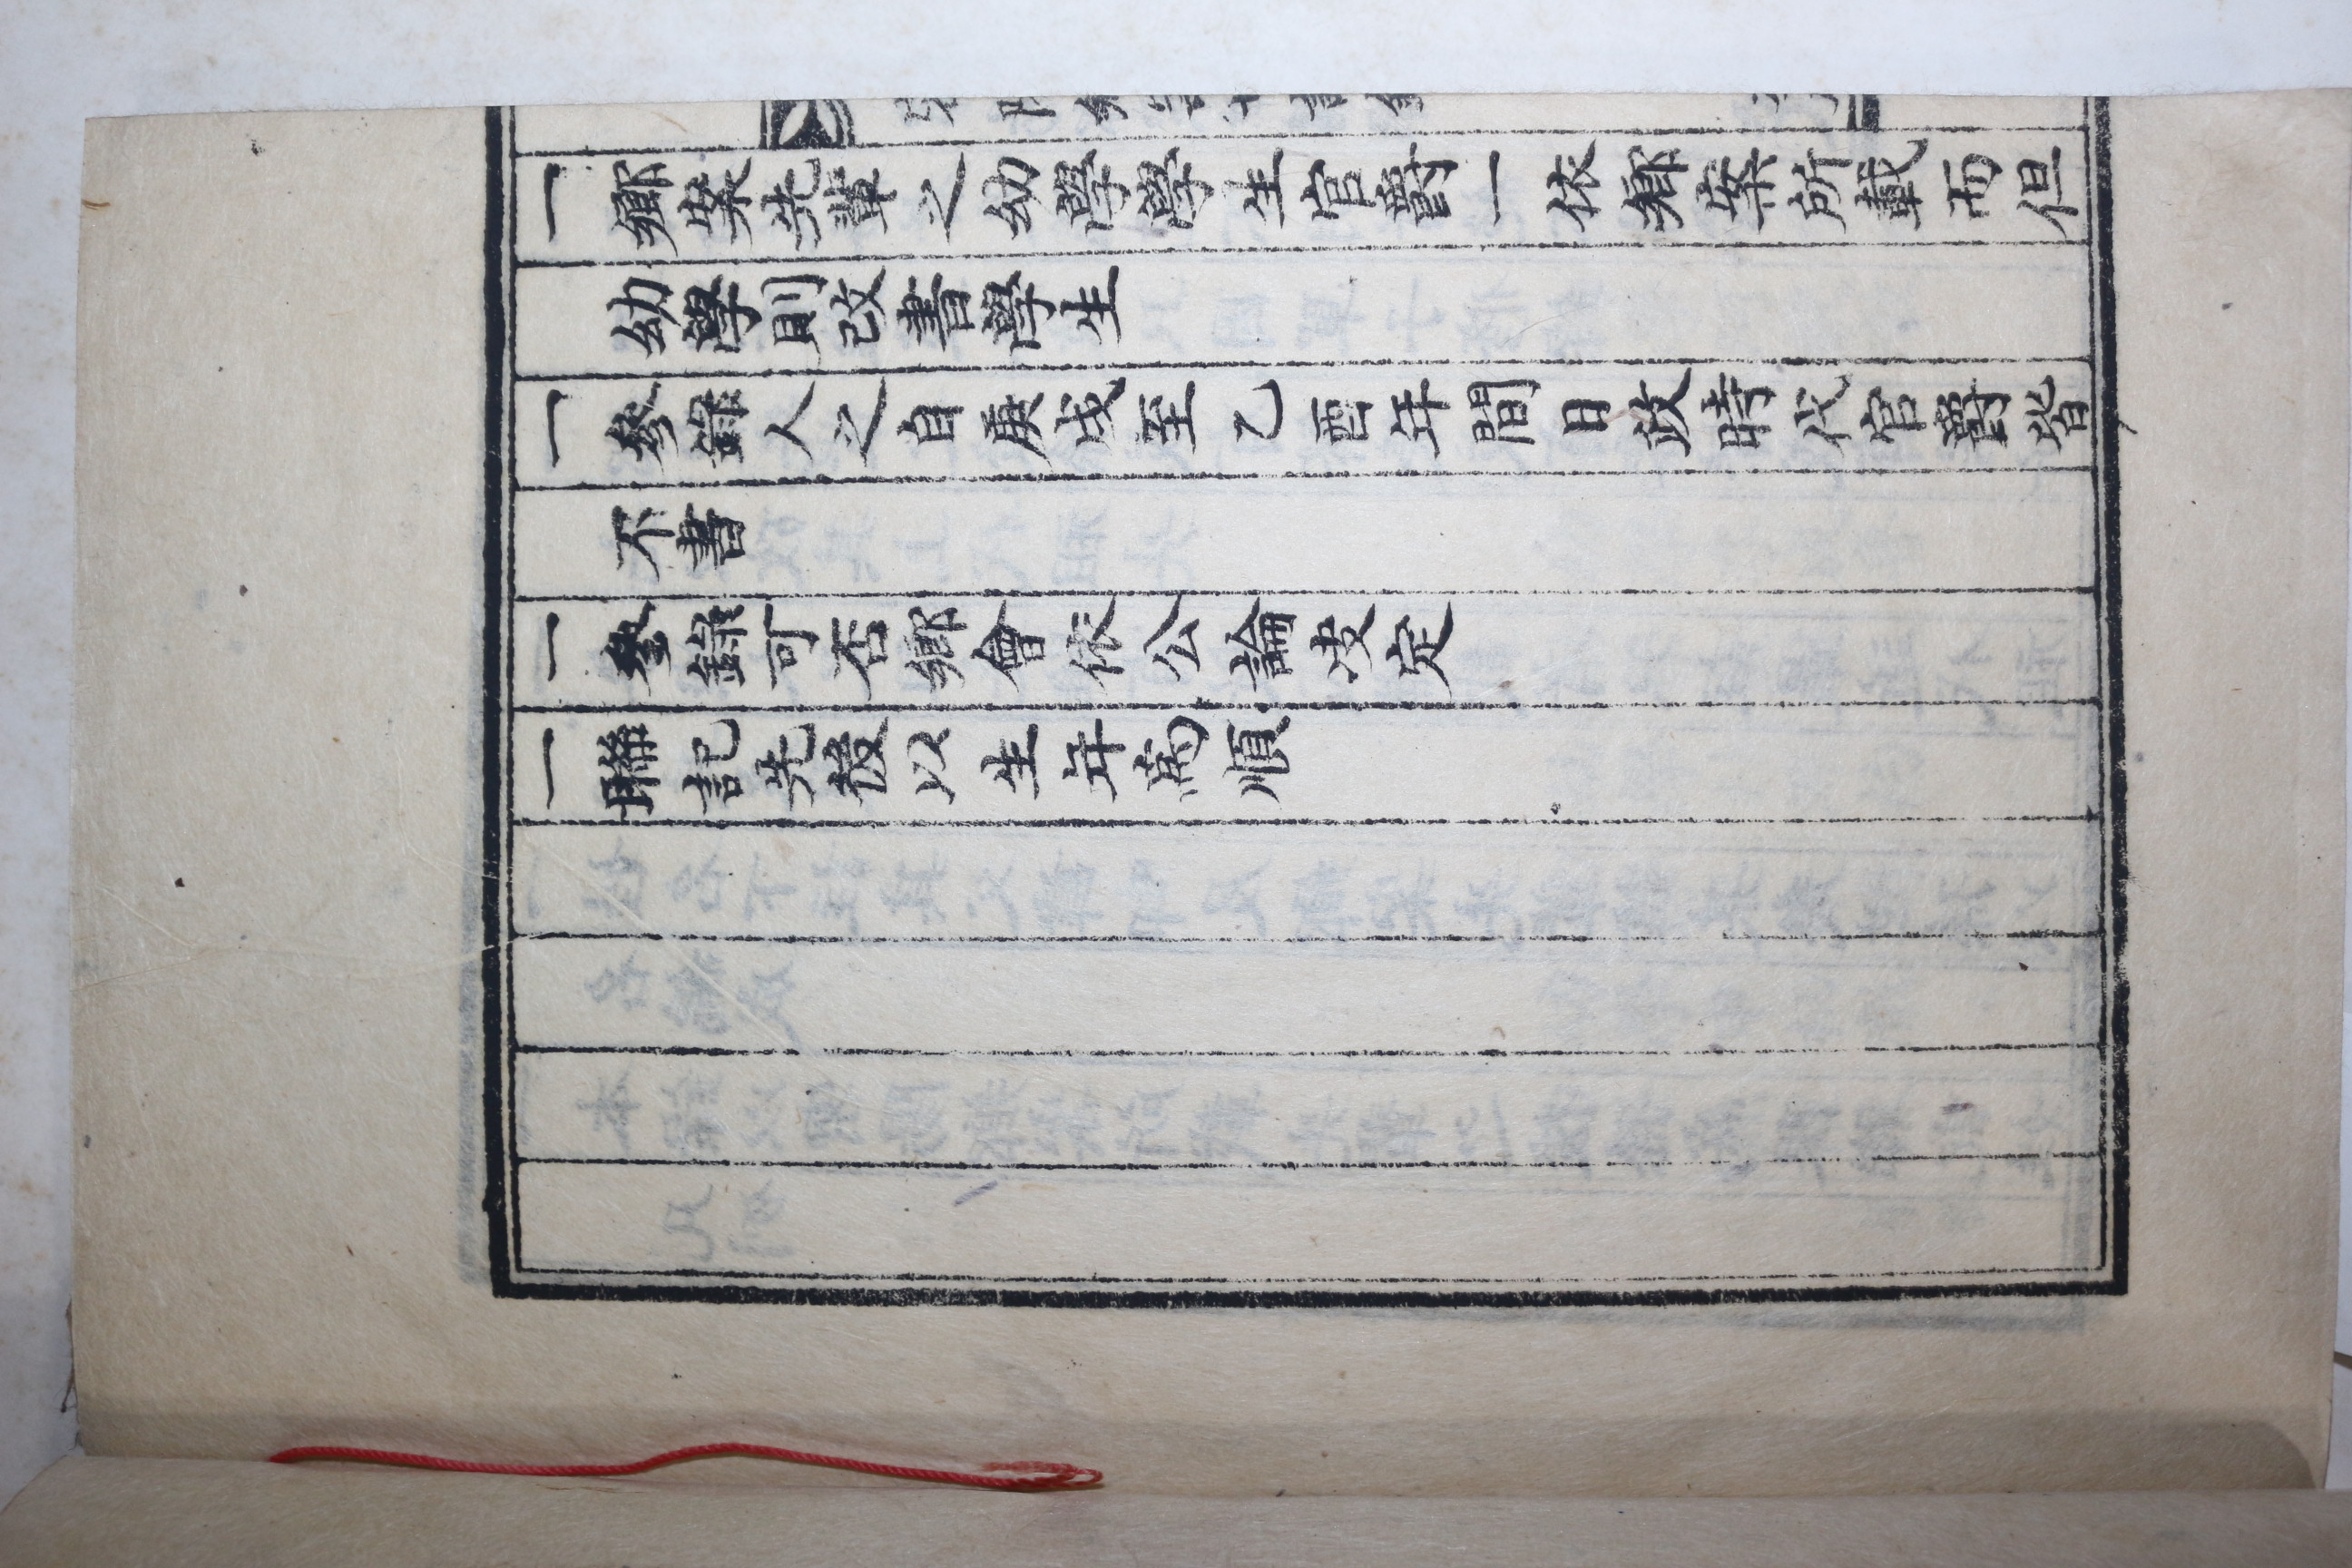 一鄕案先輩之幼學學生官爵一依鄕案所載而但
幼學則改書學生
一參錄人之自庚戌至乙酉年間日政時代官爵皆
不書
一參錄可否鄕會依公論决定
一聯記先後以生年爲順